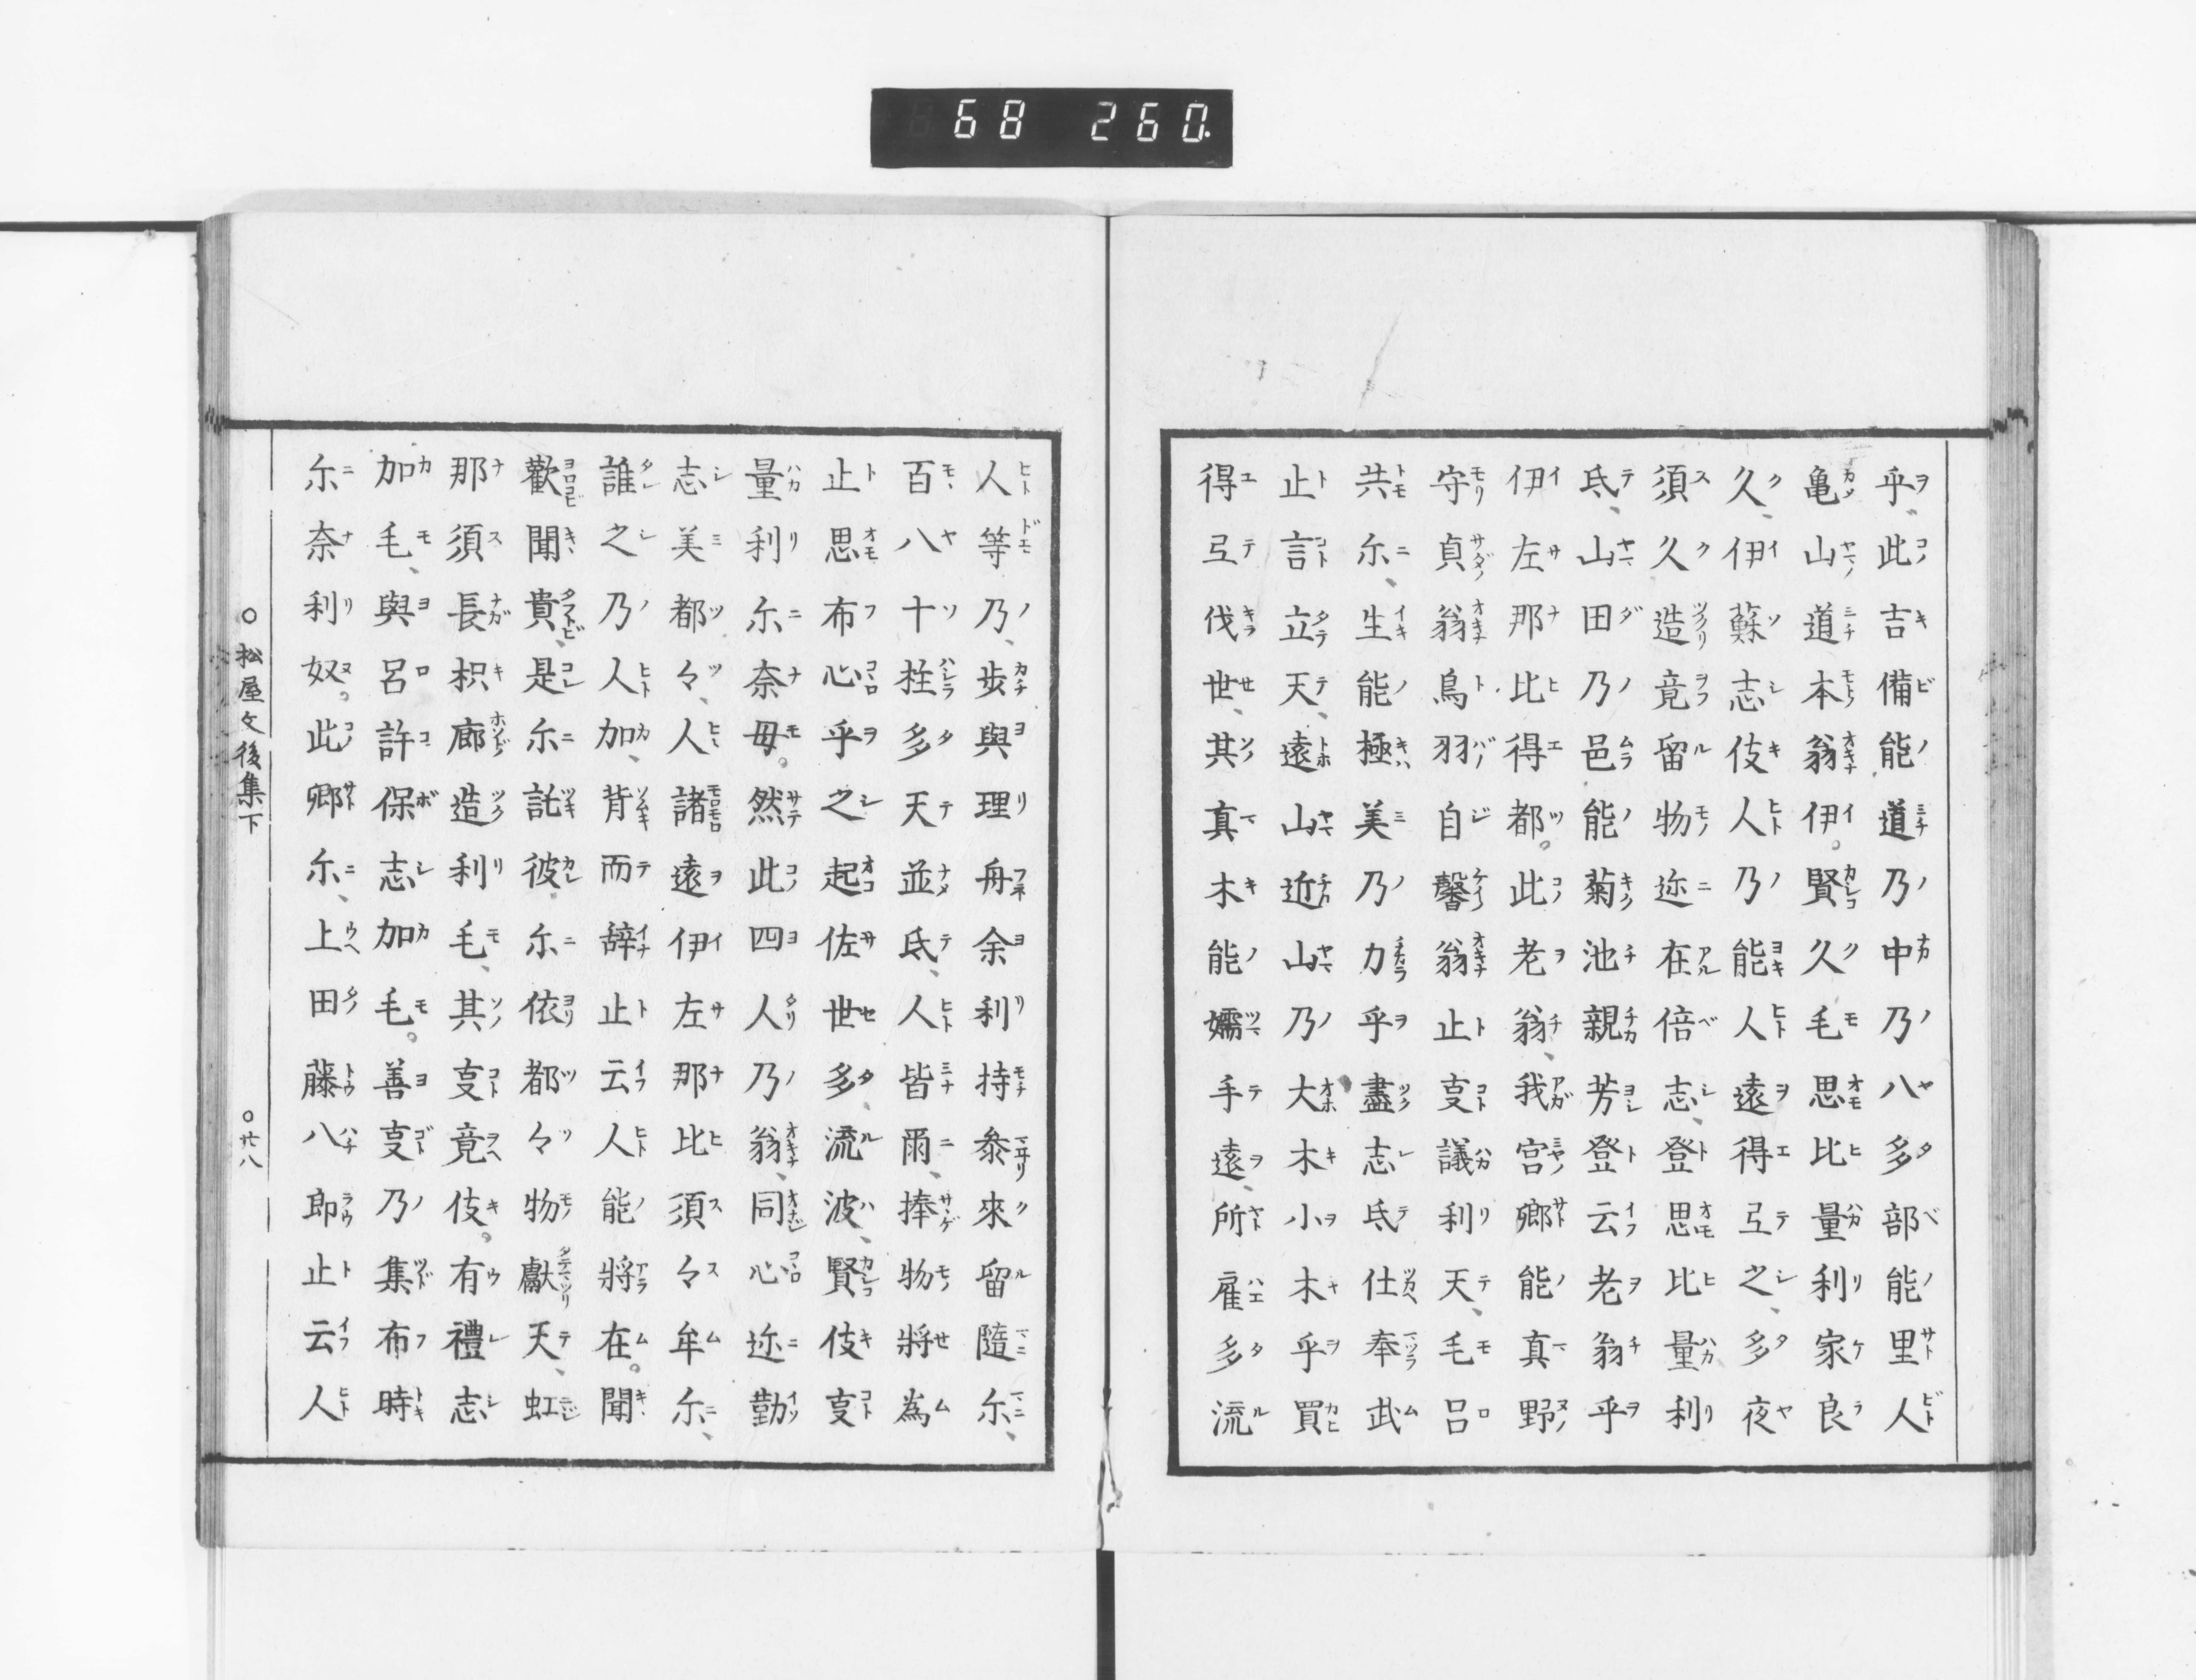 68 260.
乎、此吉備能道乃中乃八多部能里人
亀山道本翁伊。賢久毛思比量利家良
久、伊蘇志伎人乃能人遠得弖之、多夜
須久造竟留物迩在倍志、登思比量利
氐、山田乃邑能菊池親芳登云老翁乎
伊左那比得都。此老翁、我宮郷能真野
守貞翁鳥羽自馨翁止叓議利天、毛呂
共尓、生能極美乃力乎盡志氐仕奉武
止言立天、遠山近山乃大木小木乎買
得弖伐世、其真木能嬬手遠、所雇多流
人等乃、歩與理舟余利持叅來留隨尓、
百八十拄多天並氐、人皆爾、捧物將為
止思布心乎之起佐世多、流波、賢伎叓
量利尓奈毋。然此四人乃翁、同心迩勤
志美都々、人諸遠伊左那比須々牟尓、
誰之乃人加、背而辞止云人能將在。聞
歡聞貴、是尓託彼尓依都々物獻天、虹
那須長枳廊造利毛、其叓竟伎。有禮志
加毛、與呂許保志加毛。善叓乃集布時
尓奈利奴。此郷尓、上田藤八郎止云人
○松屋文後集下 ○廿八